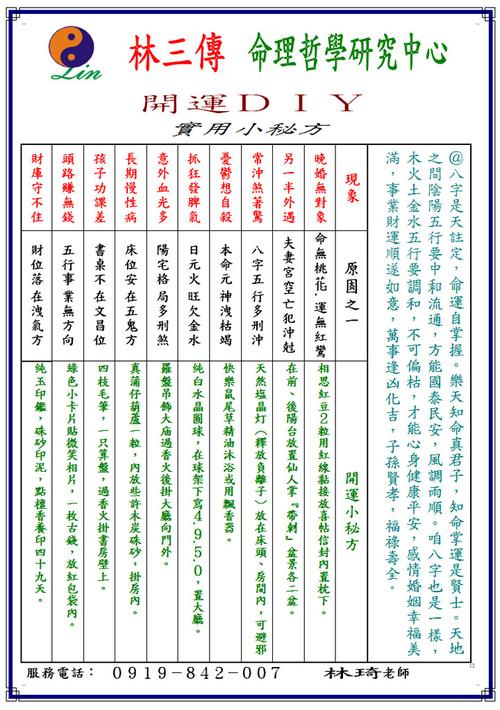 Lin
林三傳 命理哲學研究中心
開運DIY
實用小秘方
@八字是天註定，命運自掌握。樂天知命真君子，知命掌運是賢士。天地
之間陰陽五行要中和流通，方能國泰民安，風調雨順。咱八字也是一樣，
木火土金水五行要調和，不可偏枯，才能心身健康平安，感情婚姻幸福美
滿，事業財運順遂如意，萬事逢凶化吉，子孫賢孝，福祿壽全。
現象
原因之一
開運小秘方
晚婚無對象
命無桃花，運無紅鸞
相思紅豆2粒用紅線黏接放喜帖信封內置枕下。
另一半外遇
夫妻宮空亡犯沖尅
在前、後陽台放置仙人掌『帶刺』盆景各二盆。
常沖煞著驚
八字五行多刑沖
天然塩晶灯(釋放負離子)放在床頭、房間內，可避邪
憂鬱想自殺
本命元神洩枯竭
快樂鼠尾草精油沐浴或用飄香器。
抓狂發脾氣
日元火旺欠金水
純白水晶圓球，在球架下寫4.9.5.0，置大廳。
意外血光多
陽宅格局多刑煞
羅盤吊飾大庙過香火後掛大廳向門外。
長期慢性病
床位安在五鬼方
真蒲仔葫蘆一粒，內放些許木炭硃砂，掛房內。
孩子功課差
書桌不在文昌位
四枝毛筆，一只算盤，過香火掛書房壁上。
頭路賺無錢
五行事業無方向
綠色小卡片貼微笑相片，一枚古錢，放紅包袋內。
財庫守不住
財位落在洩氣方
純玉印鑑，硃砂印泥，點檀香養印四十九天。
服務電話： 0919-842-007 林琦老師